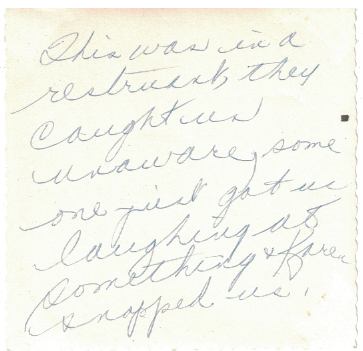 This was in a
restruant, they
caught us
unaware, some
one just got us
laughing at
something & Karen
snapped us.